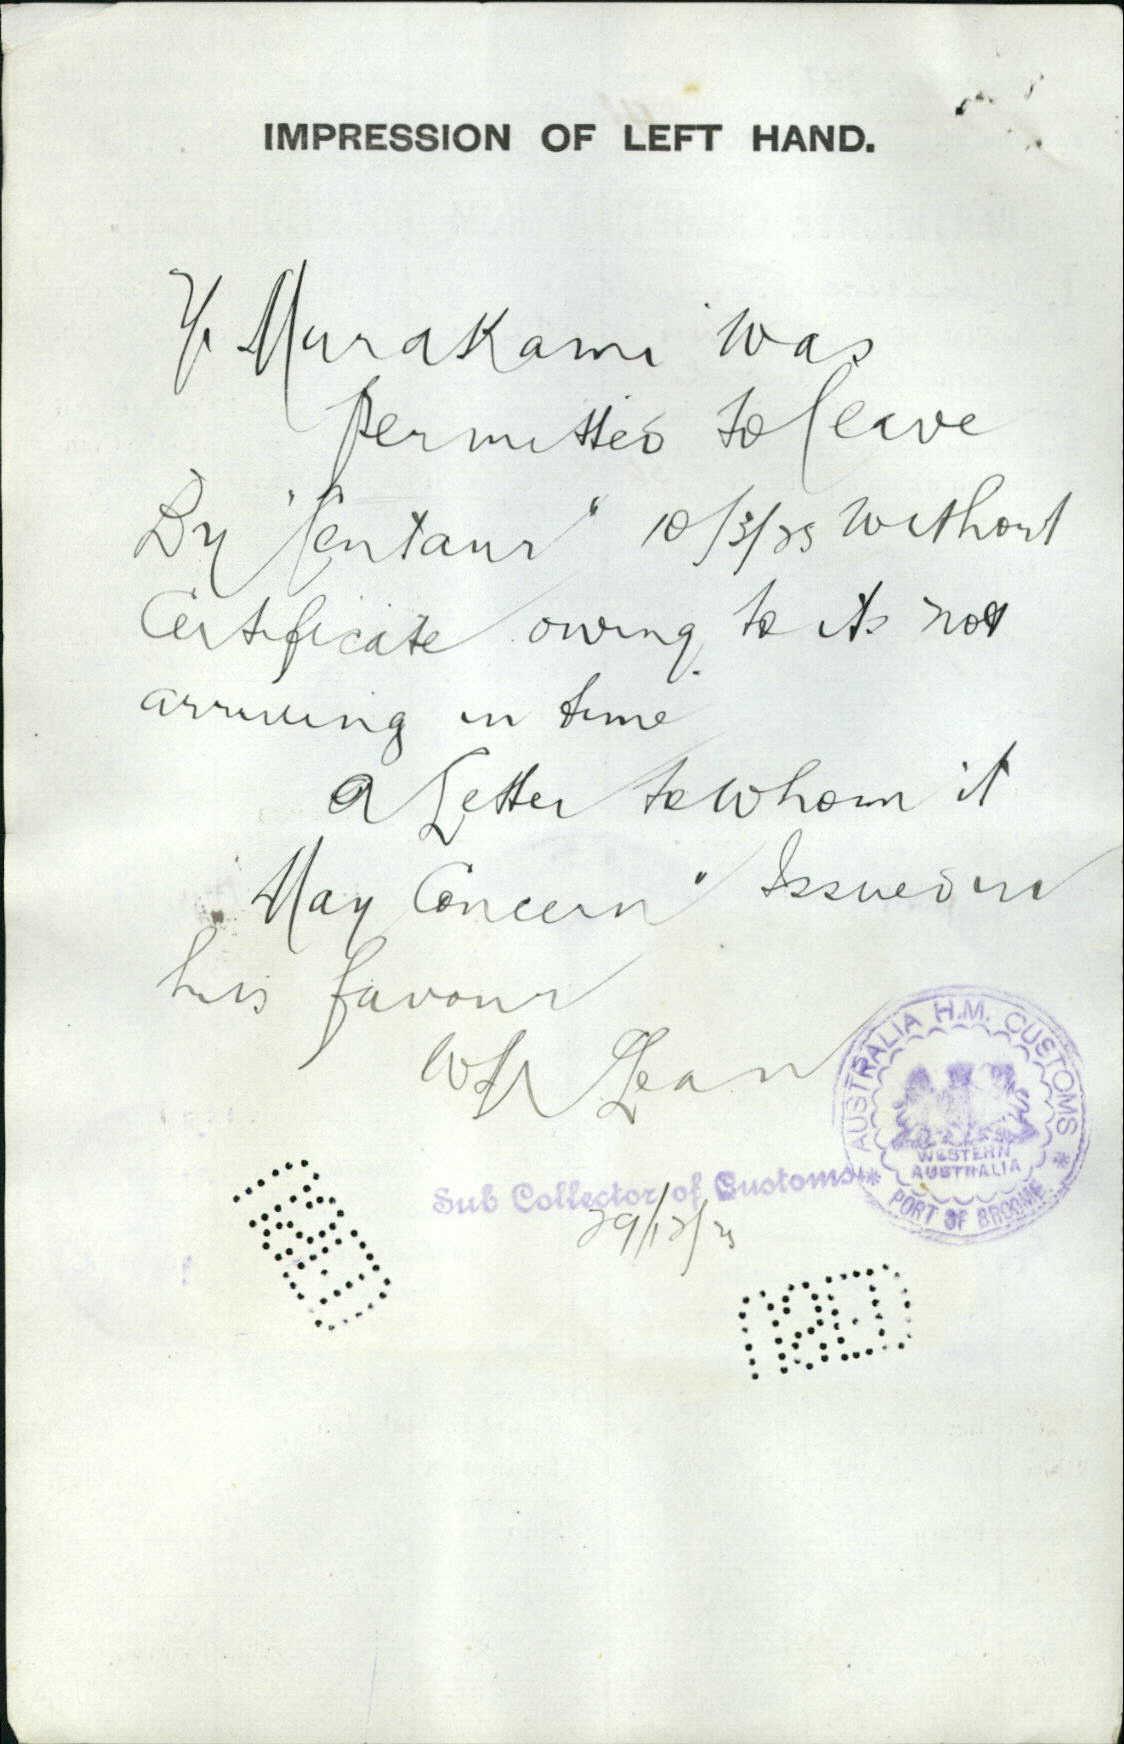 IMPRESSION OF LEFT HAND.
Y. Murakami was
permitted to leave
By "Centaur" 10/3/25 without
Certificate owing to its not
arriving in time
a Letter to whom it
May Concern" Issued in
his favour
Sub Collector of Customs
29/12/25
AUSTRALIA H.M. CUSTOMS
WESTERN
AUSTRALIA
PORT OF BROOME